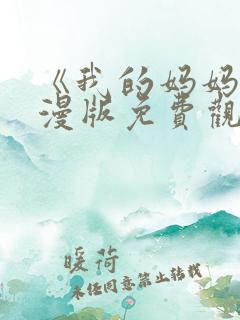 《我的妈妈
漫版免費觀
暖荷
未经同意禁止转载